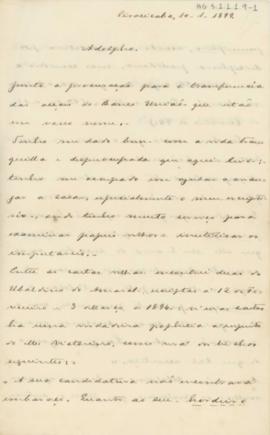 AG 5.1.1.9-1
Piracicaba, 10. 1. 1899
Adolpho.
Junto a procuração para a transferencia
das acções do Banco União, que estão
em vosso nome.
Tenho me dado bem com a vida tran-
quilla e despreocupada que aqui levo;
tenho me occupado em ajudar a arran-
jar a casa, especialmente o meu escripto-
rio, onde tenho muito serviço para
examinar papeis velhos e inutilisar os
imprestaveis.
Entre as cartas velhas encontrei duas do
Ubaldino do Amaral, escriptas a 12 de Fe-
vereiro e 3 de Março de 1894. N'uma
ha uma verdadeira prophecia a respeito
do
seguintes:
"A sua candidatura não encontrará
embaraços. Quanto ao seu